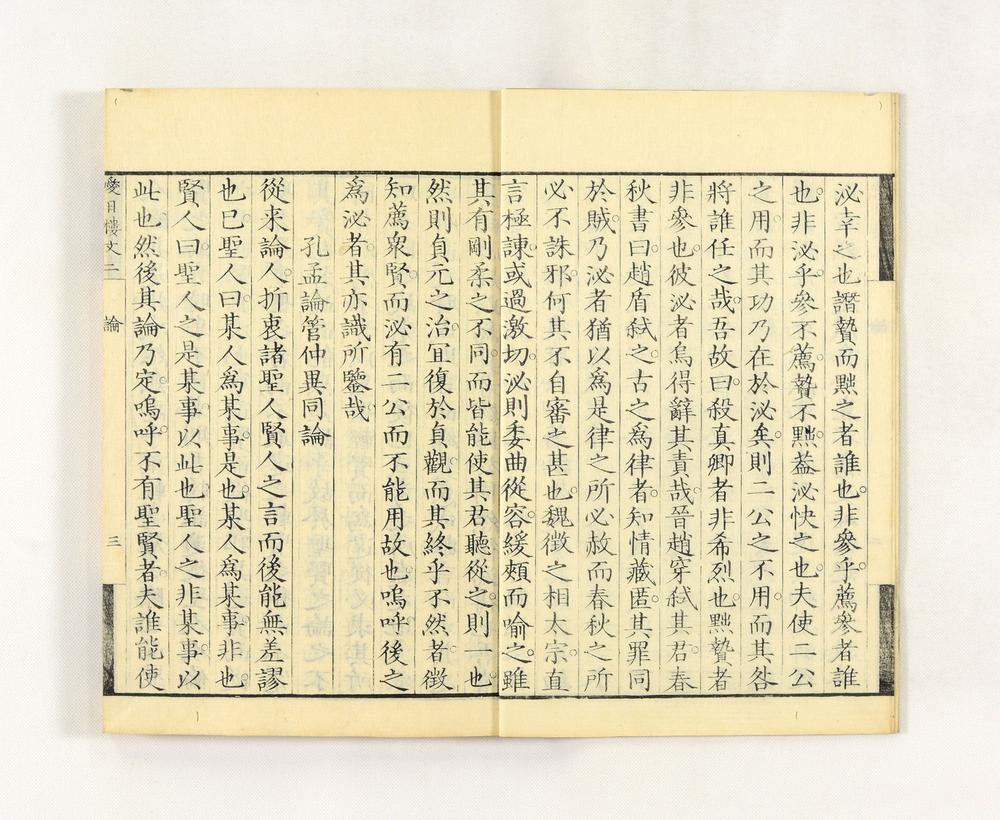 泌幸之也譖贄而黜之者誰也非參乎薦參者誰
也非泌乎參不薦贄不黜葢泌快之也夫使二公
之用而其功乃在於泌矣則二公之不用而其咎
將誰任之哉吾故曰殺真卿者非希烈也黜贄者
非參也彼泌者烏得辭其責哉晉趙穿弑其君春
秋書曰趙盾弑之古之爲律者知情藏匿其罪同
於賊乃泌者猶以爲是律之所必赦而春秋之所
必不誅邪何其不自審之甚也魏徵之相太宗直
言極諫或過激切泌則委曲從容緩頰而喻之雖
其有剛柔之不同而皆能使其君聽從之則一也
然則貞元之治冝復於貞觀而其終乎不然者徵
知薦衆賢而泌有二公而不能用故也嗚呼後之
爲泌者其亦識所鑒哉
孔孟論管仲異同論
從来論人折衷諸聖人賢人之言而後能無差謬
也已聖人曰某人爲某事是也某人爲某事非也
賢人曰聖人之是某事以此也聖人之非某事以
此也然後其論乃定嗚呼不有聖賢者夫誰能使
愛日樓文二 論 三